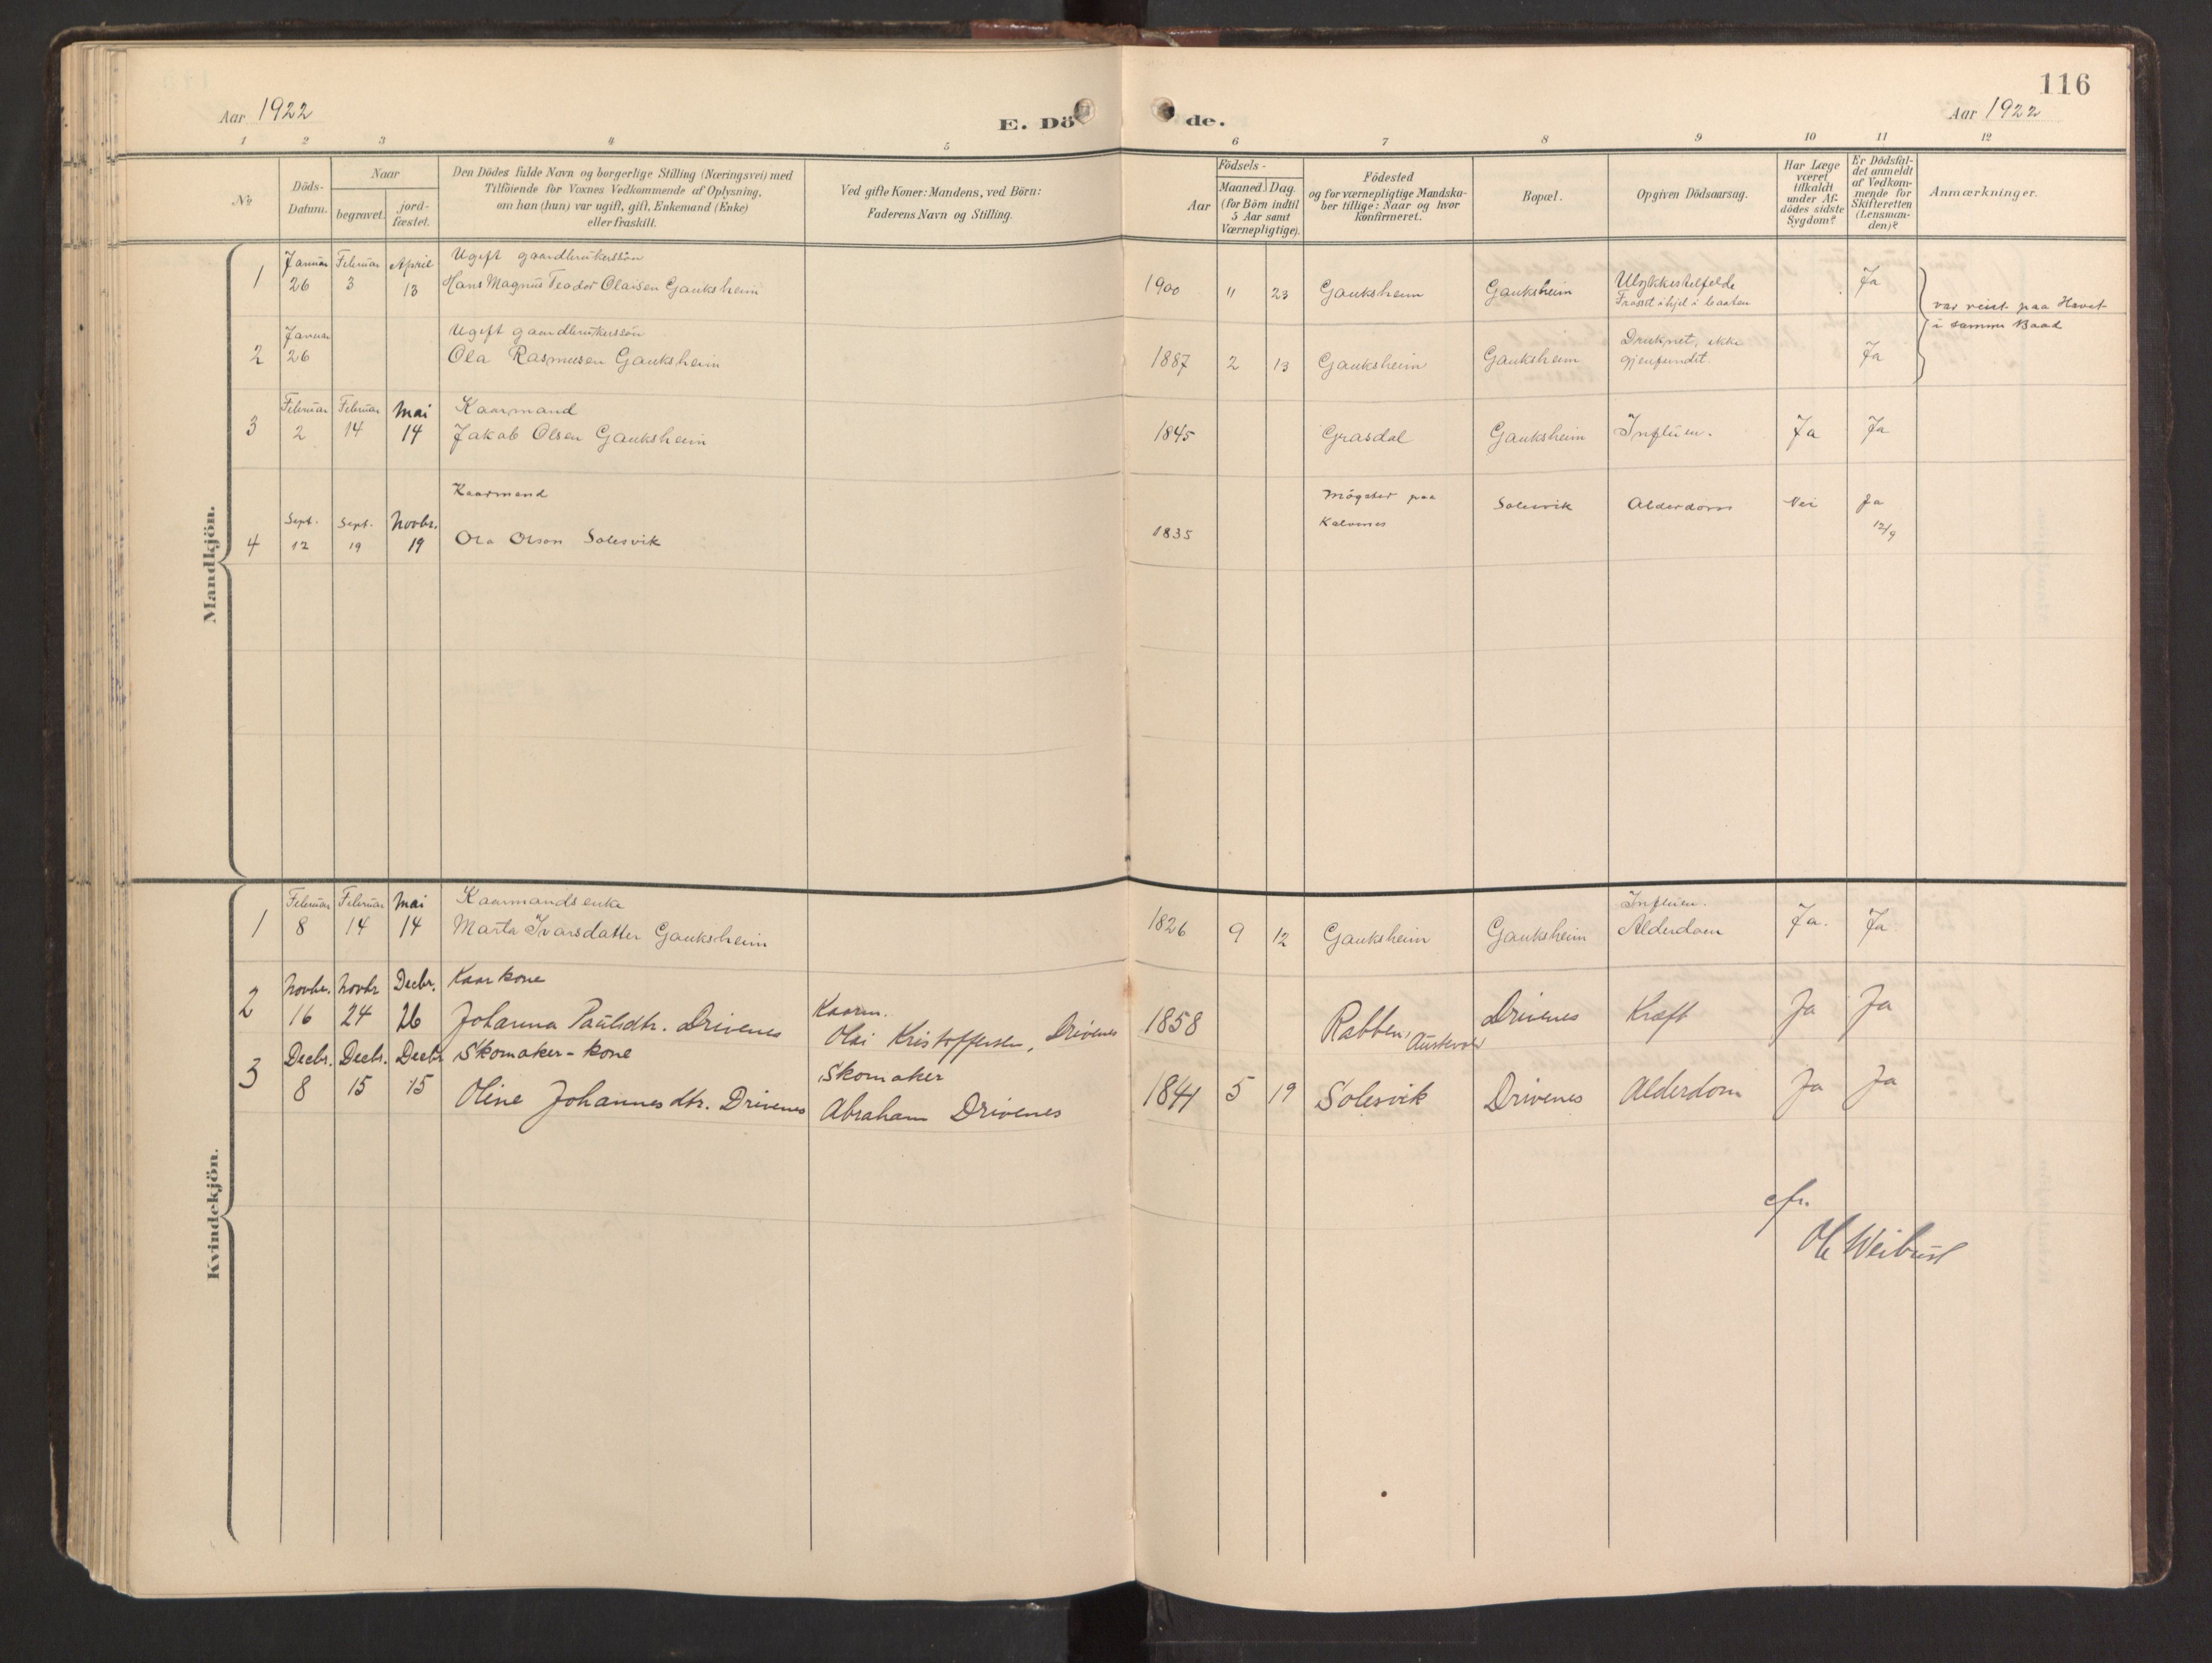 116
Aar 1922
E. Döde.
Aar 1922
1 2 3 4 5 6 7 8 9 10 11 12
№
Döds-
Datum.
Naar
begravet.
jord-
fæstet.
Den Dödes fulde Navn og borgerlige Stilling (Næringsvei) med
Tilföiende for Voxnes Vedkommende af Oplysning,
om han (hun) var ugift, gift, Enkemand (Enke)
eller fraskilt.
Ved gifte Koner: Mandens, ved Börn:
Faderens Navn og Stilling.
Födsels-
Aar
Maaned. Dag.
(for Börn indtil
5 Aar samt
Værnepligtige).
Födested
og for værnepligtige Mandska-
ber tillige: Naar og hvor
konfirmeret.
Bopæl.
Opgiven Dödsaarsag.
Har Læge
været
tilkaldt
under Af-
dödes sidste
Sygdom?
Er Dödsfal-
det anmeldt
af Vedkom-
mende for
Skifteretten
(Lensman-
den)?
Anmærkninger.
Mandkjön.
Januar Februar April Ugift gaardbrukerssön
1 26 3 13 Hans Magnus Teodor Olaisen Gauksheim 1900 11 23 Gauksheim Gauksheim Ulykkestilfelde Ja
Frosset ihjel i baaten
var reist paa Havet
i samme Baad
Januar Ugift gaardbrukerssön
2 26 Ola Rasmusen Gauksheim 1887 2 13 Gauksheim Gauksheim Druknet, ikke Ja
gjenfundet.
Februar Februar Mai Kaarmand
3 2 14 14 Jakob Olsen Gauksheim 1845 Grasdal Gauksheim Influen. Ja Ja
Kaarmand Møgster paa Solesvik Alderdom Nei Ja
Sept. Sept. Novbr. Kalvenes 12/9
4 12 19 19 Ola Olson Solesvik 1835
Kvindekjön.
Februar Februar Mai Kaarmandsenke Influen.
1 8 14 14 Marta Ivarsdatter Gauksheim 1826 9 12 Gauksheim Gauksheim Alderdom Ja. Ja
Novbr. Novbr Decbr. Kaarkone Kaarm.
2 16 24 26 Johanna Paulsdtr. Drivenes Olai Kristoffersen, Drivenes 1858 Rabben, Austevold Drivenes Kræft Ja Ja
Decbr. Decbr. Decbr Skomaker-kone Skomaker
3 8 15 15 Oline Johannesdtr. Drivenes Abraham Drivenes 1841 5 19 Solesvik Drivenes Alderdom Ja Ja
cfr.